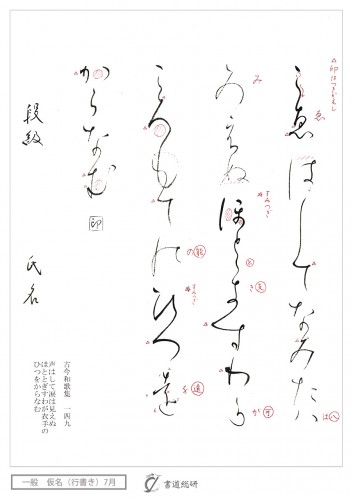 こゑはしてなみた八
みえぬほとゝ支すわ可
ころもて能ひつ遠
からなむ
印
段級 氏名
古今和歌集 一四九
声はして涙は見えぬ
ほととぎすわが衣手の
ひつをからなむ
一般 仮名（行書き）7月
書道総研